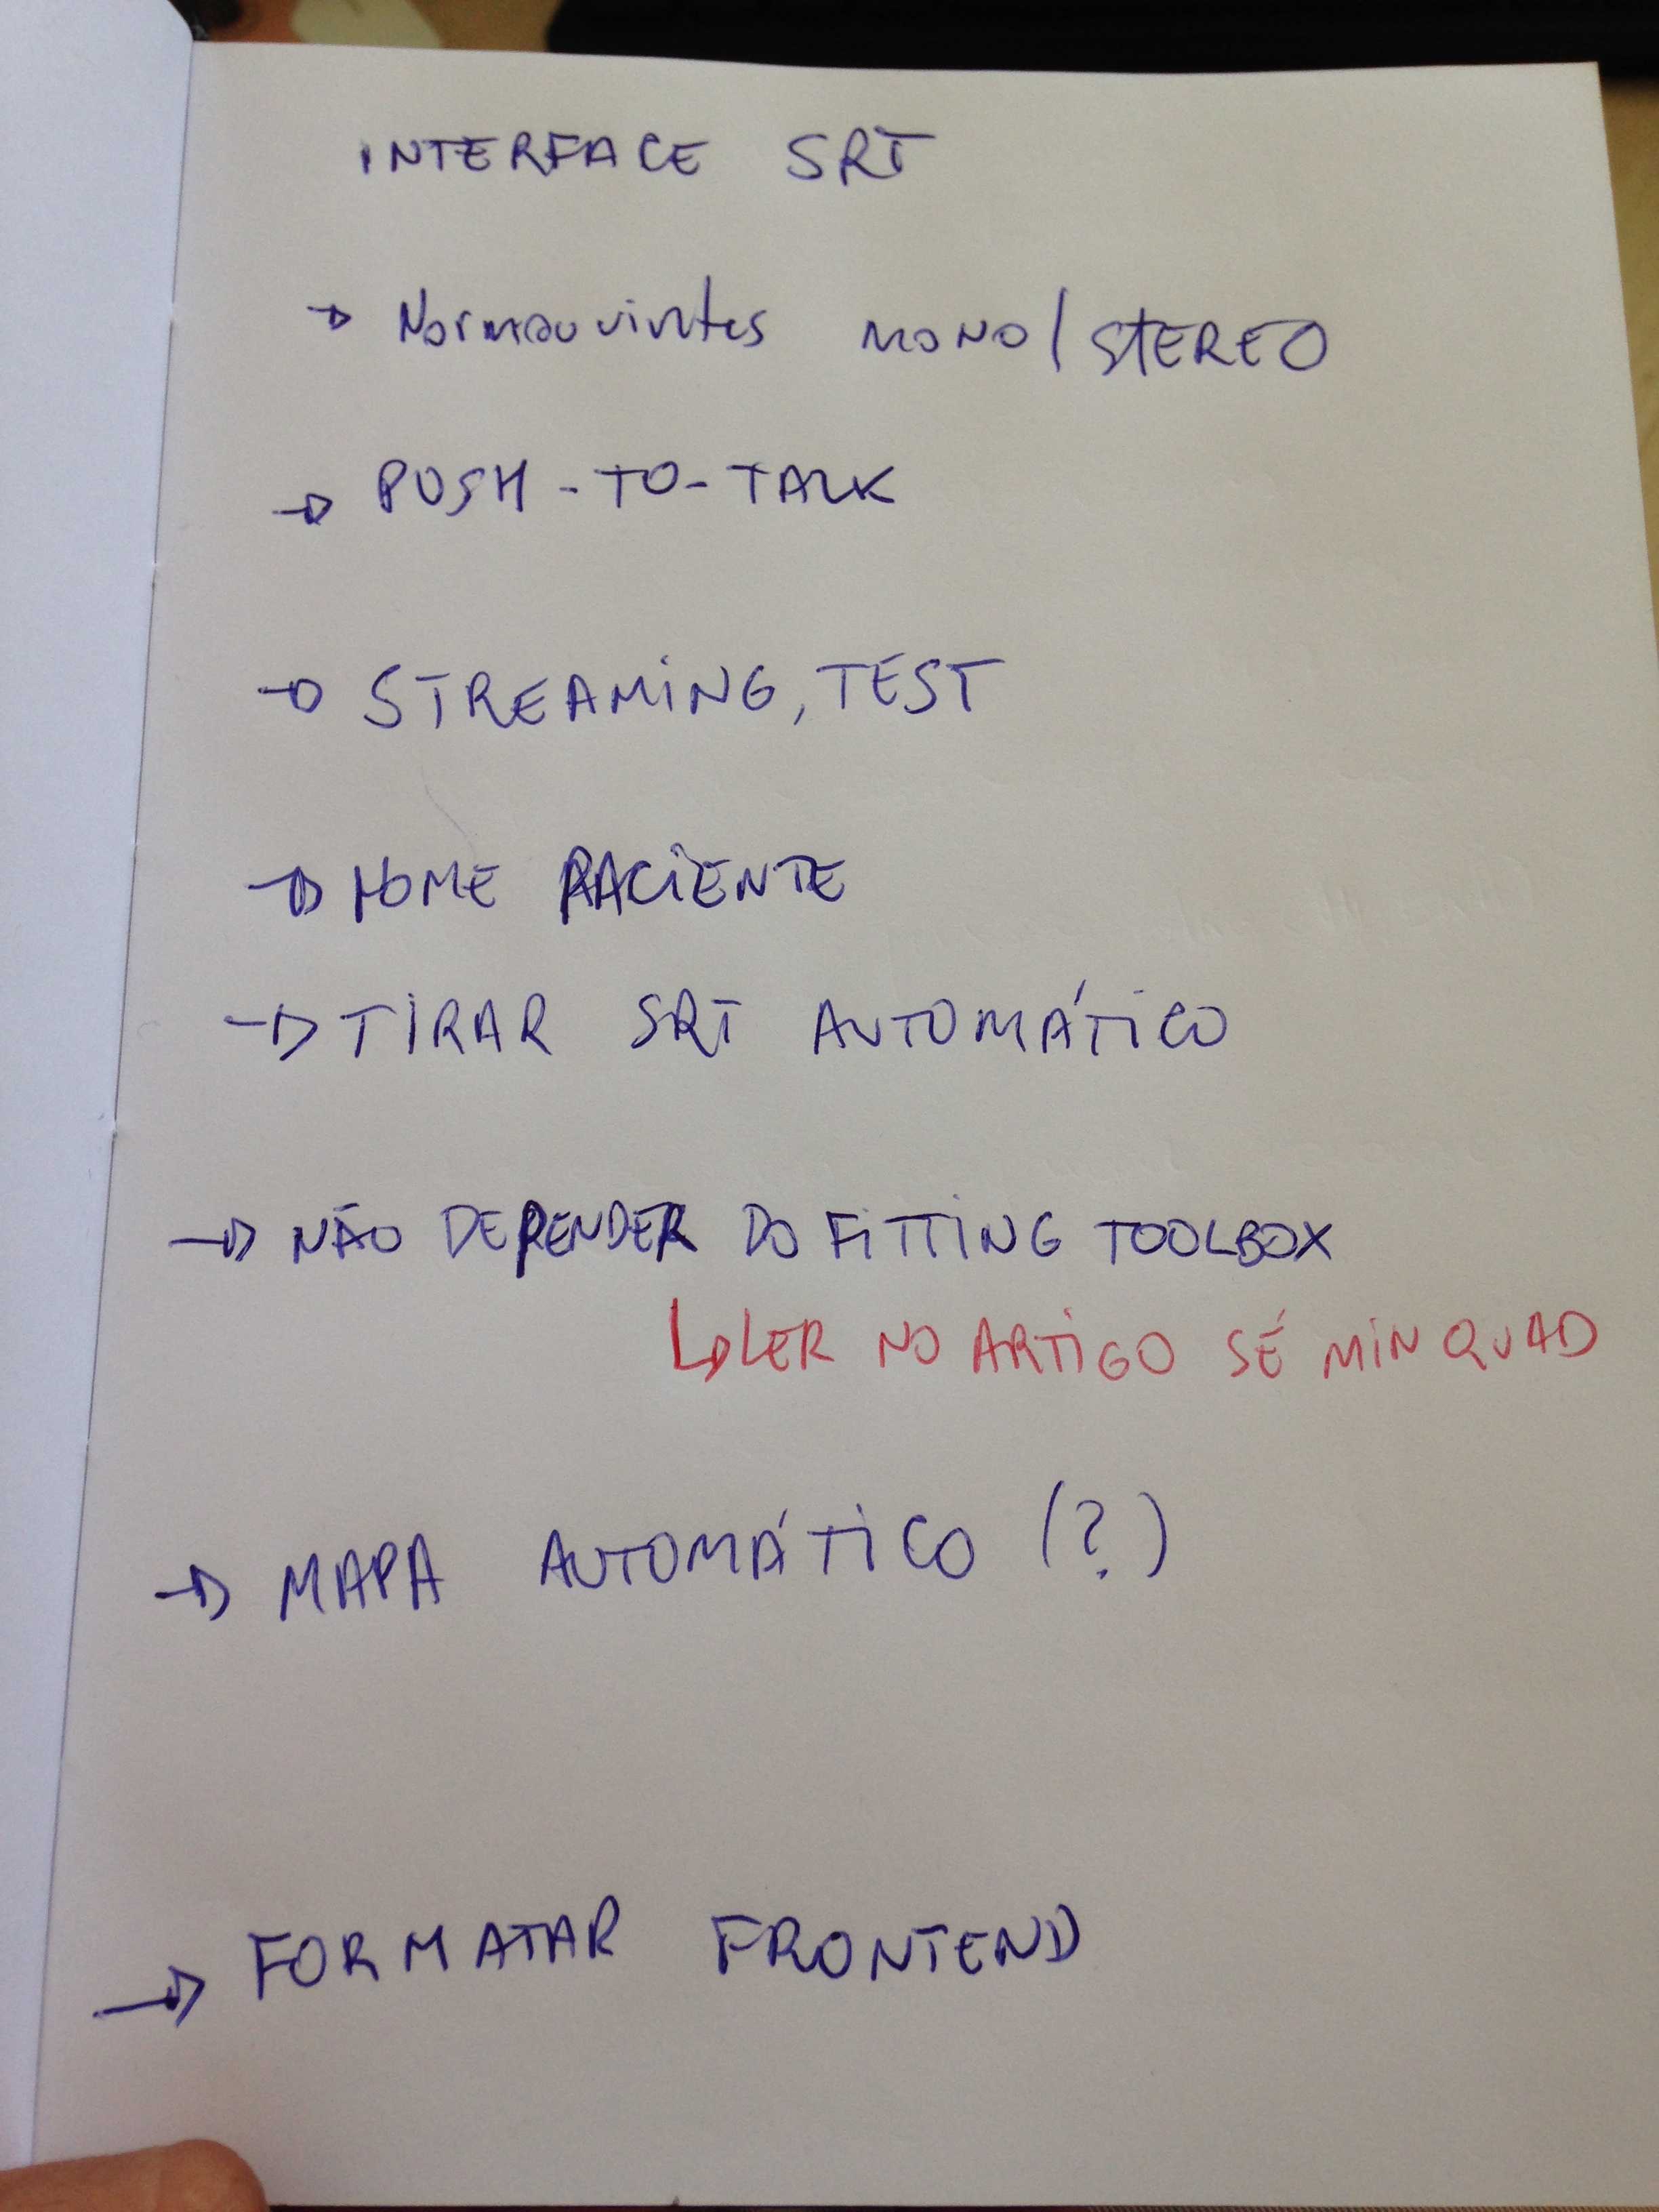 INTERFACE SRT
→ Normouvintes MONO/STEREO
→ PUSH-TO-TALK
→ STREAMING, TEST
→ NOME PACIENTE
→ TIRAR SRT AUTOMÁTICO
→ NÃO DEPENDER DO FITTING TOOLBOX
↳ LER NO ARTIGO SE É MIN QUAD
→ MAPA AUTOMÁTICO (?)
→ FORMATAR FRONTEND